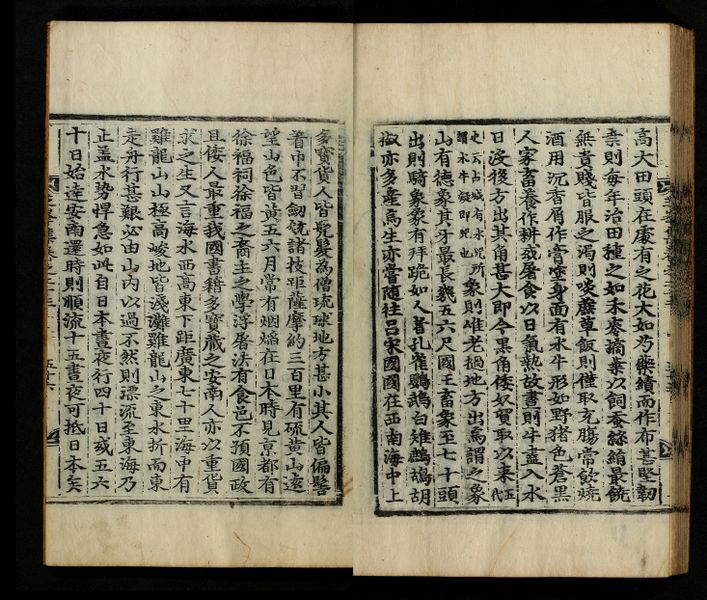 高大田頭在處有之花大如芍藥績而作布甚堅韌
桑則每年治田種之如禾麥摘葉以飼蚕絲絹最饒
無貴賤皆服之渴則啖蔗草飯則僅取充腸常飲燒
酒用沉香屑作膏塗身面有水牛形如野猪色蒼黑
人家畜養作耕或屠食以日氣熱故晝則牛盡入水
日沒後方出其角甚大即今黑角倭奴貿取以來五代
史云占城有水兕
謂水牛疑即兕也
所象則惟老撾地方出焉謂之象
山有德象其牙最長幾五六尺國王畜象至七十頭
出則騎象象有拜跪如人者孔雀鸚鵡白雉鷓鴣胡
椒亦多產焉生亦嘗隨往呂宋國國在西南海中上
多寶貨人皆髡髮為僧琉球地方甚小其人皆偏髻
着巾不習劒銃諸技距薩摩約三百里有硫黃山遠
望山色皆黃五六月常有烟焰在日本時見京都有
徐福祠徐福之裔主之學浮屠法有食邑不預國政
且倭人最重我國書籍多寶藏之安南人亦以重貨
求之生又言海水西高東下距廣東七十里海中有
雞龍山山極高峻地皆淺灘雞龍山之東水折而東
走舟行甚艱必由山內以過不然則漂流至東海乃
止盖水勢悍急如此自日本晝夜行四十日或五六
十日始達安南還時則順流十五晝夜可抵日本矣